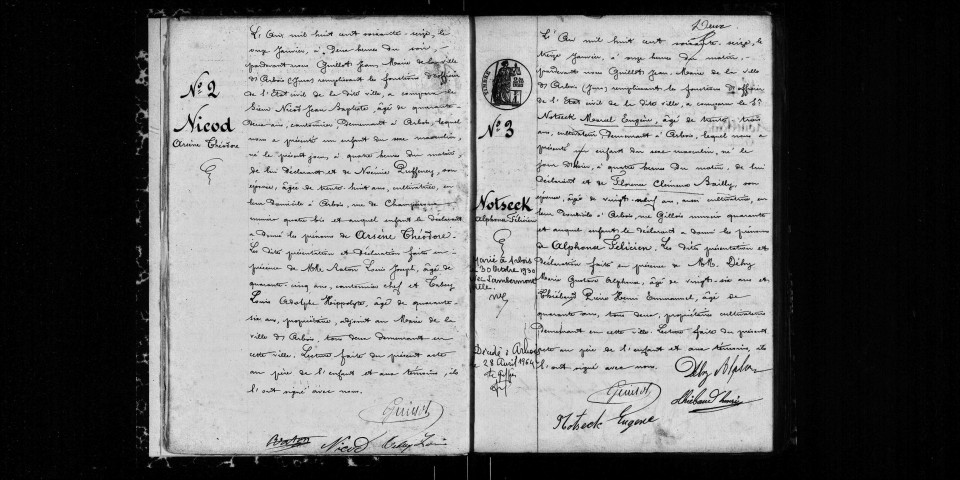 N° 2
Nicod
Arsène Théodore
L'An mil huit cent soixante-seize, le
onze Janvier, à Deux heures du soir,
pardevant nous Guillot Jean, Maire de la ville
d'Arbois (Jura) remplissant les fonctions d'officier
de l'État civil de la dite ville, a comparu le
Sieur Nicod Jean Baptiste, âgé de quarante-
deux ans, cantonnier, demeurant à Arbois, lequel
nous a présenté un enfant du sexe masculin,
né le présent jour, à quatre heures du matin,
de lui déclarant et de Noémie Puffeney, son
épouse, âgée de trente huit ans, cultivatrice, en
leur domicile à Arbois, rue de
numéro quatre bis et auquel enfant le déclarant
a donné les prénoms de Arsène Théodore.
Les dites présentation et déclaration faites en
présence de MM. Louis Joseph, âgé de
quarante-cinq ans, cantonnier chef et
Louis Adolphe Hippolyte, âgé de quarante-
six ans, propriétaire, adjoint au Maire de la
ville d'Arbois, tous deux demeurant en
cette ville. Lecture faite du présent acte
au père de l'enfant et aux témoins, ils
l'ont signé avec nous.
Nicod
Deux
N° 3
Notseck
Alphonse Félicien
Marié à Arbois
le 30 Octobre 1930
Décédé à Arbois
le 28 Avril 1964
L'An mil huit cent soixante seize, le
treize Janvier, à onze heures du matin,
pardevant nous Guillot Jean, Maire de la ville
d'Arbois (Jura) remplissant les fonctions d'officier
de l'État civil de la dite ville, a comparu le Sr
Notseck Marcel Eugène, âgé de trente-trois
ans, cultivateur demeurant à Arbois, lequel nous a
présenté un enfant du sexe masculin, né le
jour d'hier, à quatre heures du matin, de lui
déclarant et de Florine Clémence Bailly, son
épouse, âgée de vingt-neuf ans, aussi cultivatrice, en
leur domicile à Arbois rue Gillois numéro quarante
et auquel enfant le déclarant a donné les prénoms
de Alphonse Félicien. Les dites présentation et
déclaration faites en présence de MM. Déby
Marie Gustave Alphonse, âgé de vingt-six ans et
Thiébaud Henri Emmanuel, âgé de
quarante ans, tous deux, propriétaires cultivateurs
demeurant en cette ville. Lecture faite du présent
acte au père de l'enfant et aux témoins, ils
l'ont signé avec nous.
Notseck Eugène